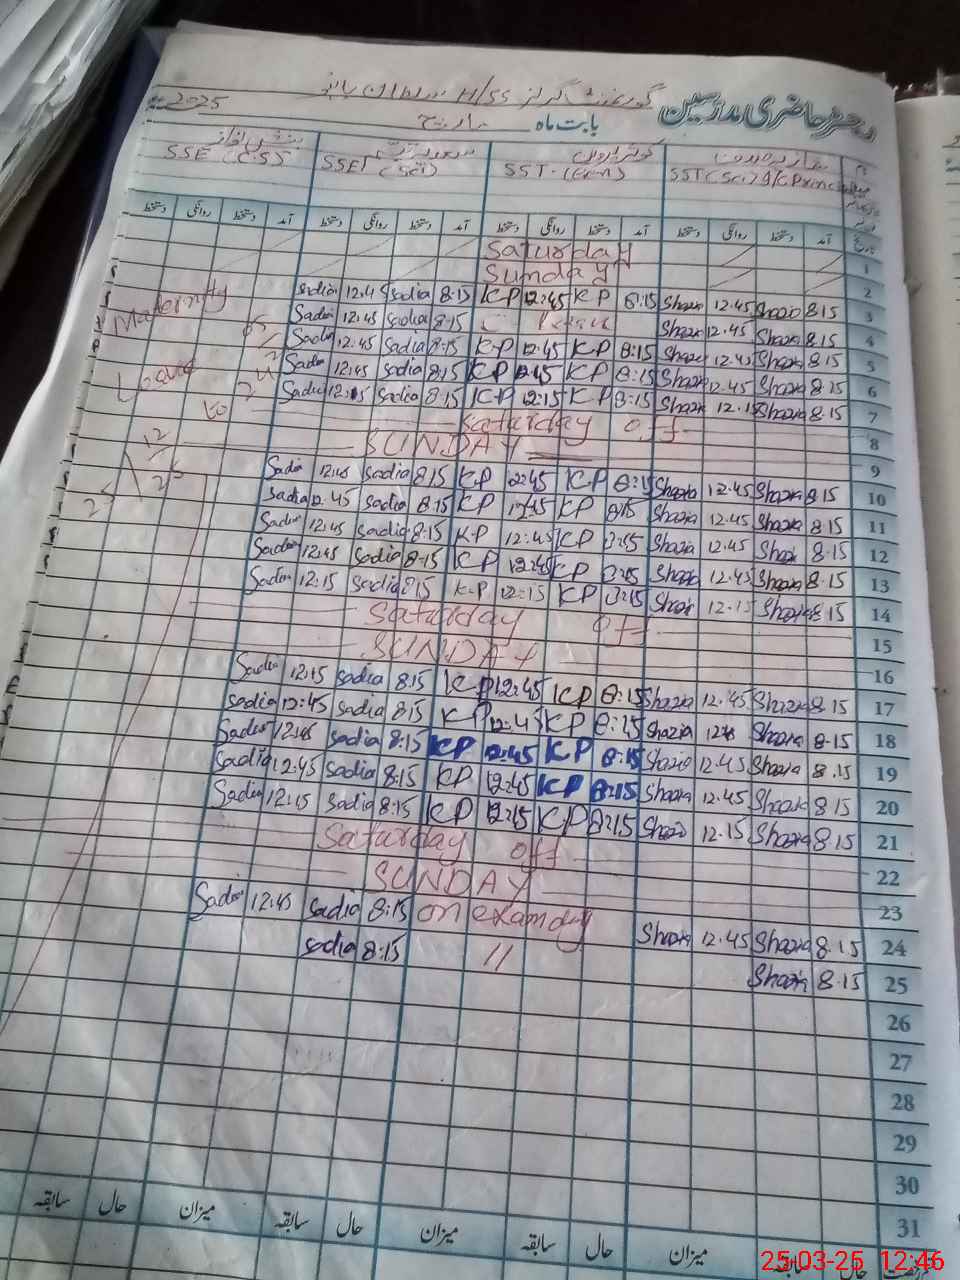 رجسٹر حاضری مدرسین گورنمنٹ گرلز H/SS
بابت ماہ مارچ 2025
SST (Sci) I/C Princ SST (Gen) SSE (Sci) SSE (CS)
تاریخ آمد دستخط روانگی دستخط آمد دستخط روانگی دستخط آمد دستخط روانگی دستخط آمد دستخط روانگی دستخط
Saturday 1
Sunday 2
Sadia 12.45 Sadia 8:15 KP 12:45 KP 8:15 Shazia 12.45 Shazia 8.15 3
Sadia 12:45 Sadia 8:15 C Leave Shazia 12.45 Shazia 8.15 4
Sadia 12.45 Sadia 8:15 KP 12:45 KP 8:15 Shazia 12.45 Shazia 8.15 5
Sadia 12:45 Sadia 8:15 KP 12:45 KP 8:15 Shazia 12.45 Shazia 8.15 6
Sadia 12:15 Sadia 8:15 KP 12:15 KP 8:15 Shazia 12.15 Shazia 8.15 7
Maternity
Leave
to
Saturday off 8
SUNDAY 9
Sadia 12:45 Sadia 8:15 K.P 12:45 KP 8:15 Shazia 12.45 Shazia 8.15 10
Sadia 12.45 Sadia 8:15 KP 12:45 KP 8:15 Shazia 12.45 Shazia 8.15 11
Sadia 12:45 Sadia 8:15 K.P 12:45 KP 8:15 Shazia 12.45 Shazia 8.15 12
Sadia 12:45 Sadia 8:15 KP 12:45 KP 8:15 Shazia 12.45 Shazia 8.15 13
Sadia 12:15 Sadia 8:15 K.P 12:15 KP 8:15 Shazia 12.15 Shazia 8.15 14
Saturday off 15
SUNDAY 16
Sadia 12:15 Sadia 8:15 KP 12:45 KP 8:15 Shazia 12.45 Shazia 8.15 17
Sadia 12:45 Sadia 8:15 KP 12:45 KP 8:15 Shazia 12.45 Shazia 8.15 18
Sadia 12:45 Sadia 8:15 KP 12:45 KP 8:15 Shazia 12.45 Shazia 8.15 19
Sadia 12:45 Sadia 8:15 KP 12:45 KP 8:15 Shazia 12.45 Shazia 8.15 20
Sadia 12:15 Sadia 8:15 KP 12:15 KP 8:15 Shazia 12.15 Shazia 8.15 21
Saturday off 22
SUNDAY 23
Sadia 12:45 Sadia 8:15 on exam duty Shazia 12.45 Shazia 8.15 24
Sadia 8:15 11 Shazia 8.15 25
26
27
28
29
30
31
میزان حال سابقہ میزان حال سابقہ میزان حال سابقہ
25-03-25 12:46